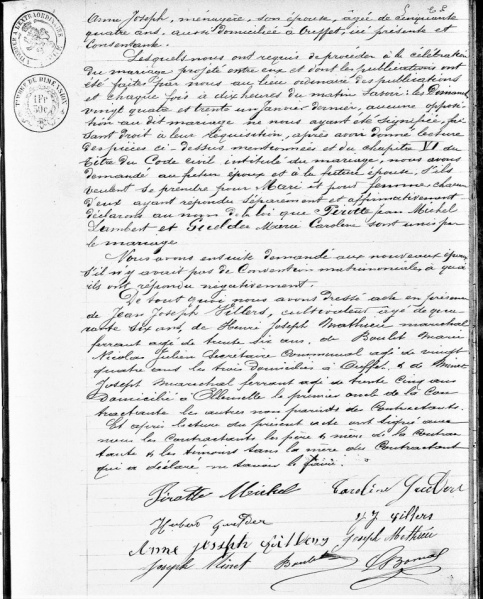 Anne Joseph, ménagère, son épouse, âgée de Cinquante
quatre ans, aussi domiciliée à Ouffet, ici présente et
Consentante.
Lesquels nous ont requis de procéder à la célébration
du mariage projeté entre eux et dont les publications ont
été faites par nous au lieu ordinaire des publications
et chaque fois à dix heures du matin savoir: les Dimanches
vingt quatre et trente un janvier dernier, aucune opposi-
tion au dit mariage ne nous ayant été signifiée, fai-
sant droit à leur réquisition, après avoir donné lecture
des pièces ci-dessus mentionnées et du chapitre VI du
titre du Code civil intitulé du mariage, nous avons
demandé au futur époux et à la future épouse, s'ils
veulent se prendre pour Mari et pour femme chacun
d'eux ayant répondu séparément et affirmativement
déclarons au nom de la loi que Pirotte Jean Michel
Lambert et Guelder Marie Caroline sont unis par
le mariage
Nous avons ensuite demandé aux nouveaux époux
s'il n'y avait pas de Convention matrimoniale, à quoi
ils ont répondu négativement.
De tout quoi nous avons dressé acte en présence
de Jean Joseph Gillers, cultivateur âgé de qua-
rante six ans, de Henri Joseph Mathieu marechal
ferrant agé de trente six ans, de Boulet Marie
Nicolas Julien Secretaire Communal agé de vingt
quatre ans les trois domiciliés à Ouffet, & de
Joseph Marechal ferrant agé de trente Cinq ans
Domicilié à Ellemelle le premier oncle de la Con-
tractante les autres non parents des Contractants.
Et après lecture du présent acte ont signé avec
nous les Contractants les père & mère de la Contrac-
tante & les témoins sans la mère du Contractant
qui a déclaré ne savoir le faire.
Pirotte Michel Caroline Guelder
Hubert Guelder J J Gillers
Anne Joseph Gillers Joseph Mathieu
Joseph Boulet